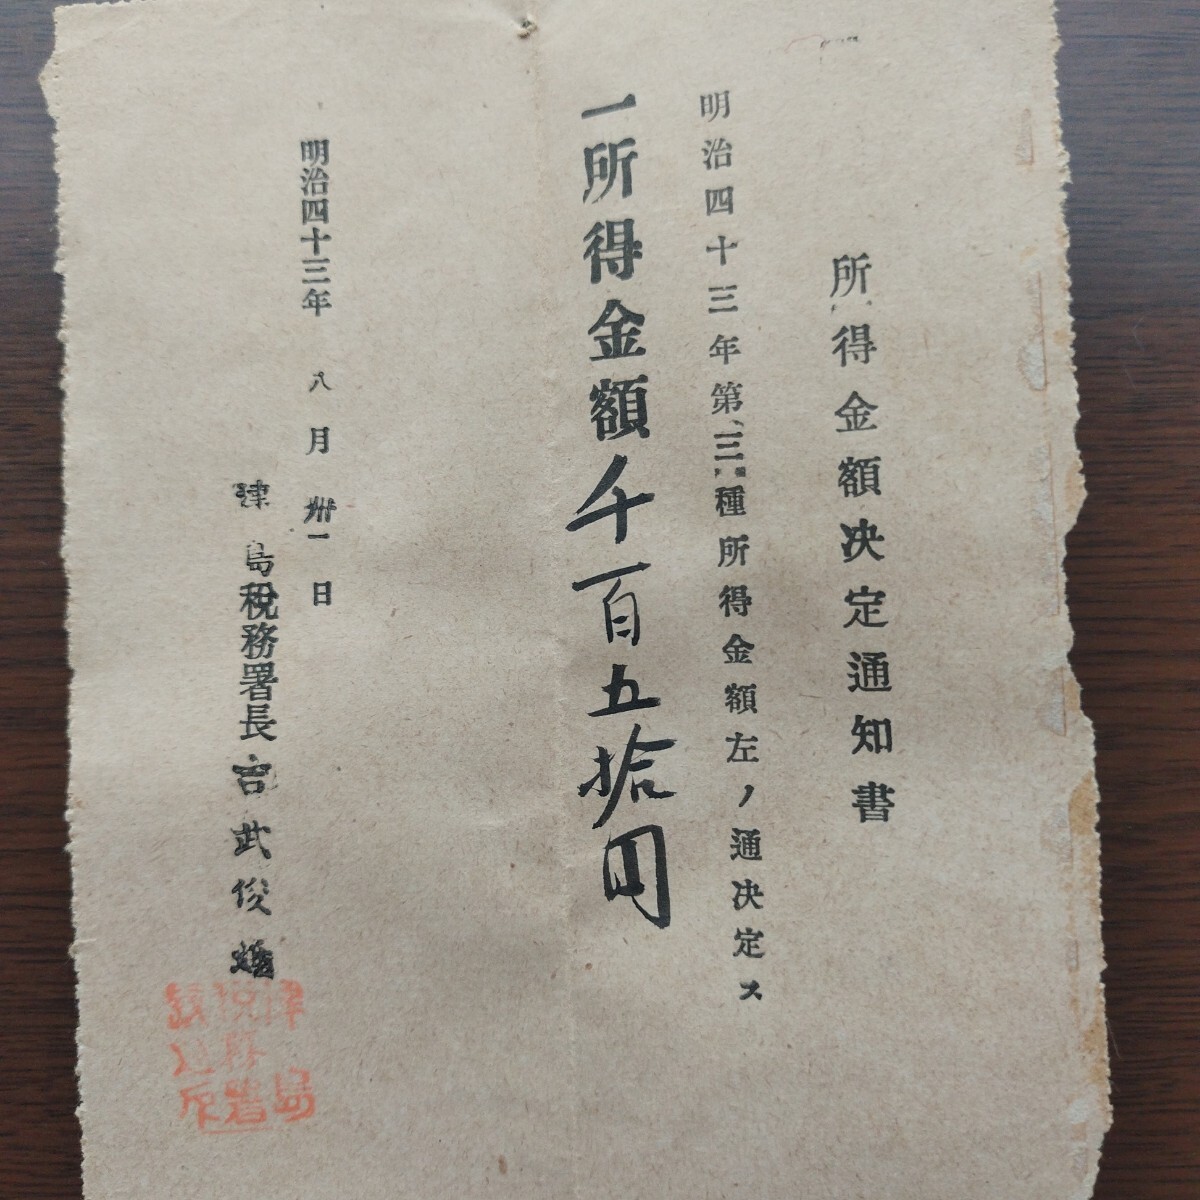 所得金額決定通知書
明治四十三年第三種所得金額左ノ通決定ス
一所得金額千百五拾円
明治四十三年八月卅一日
津島税務署長 武俊